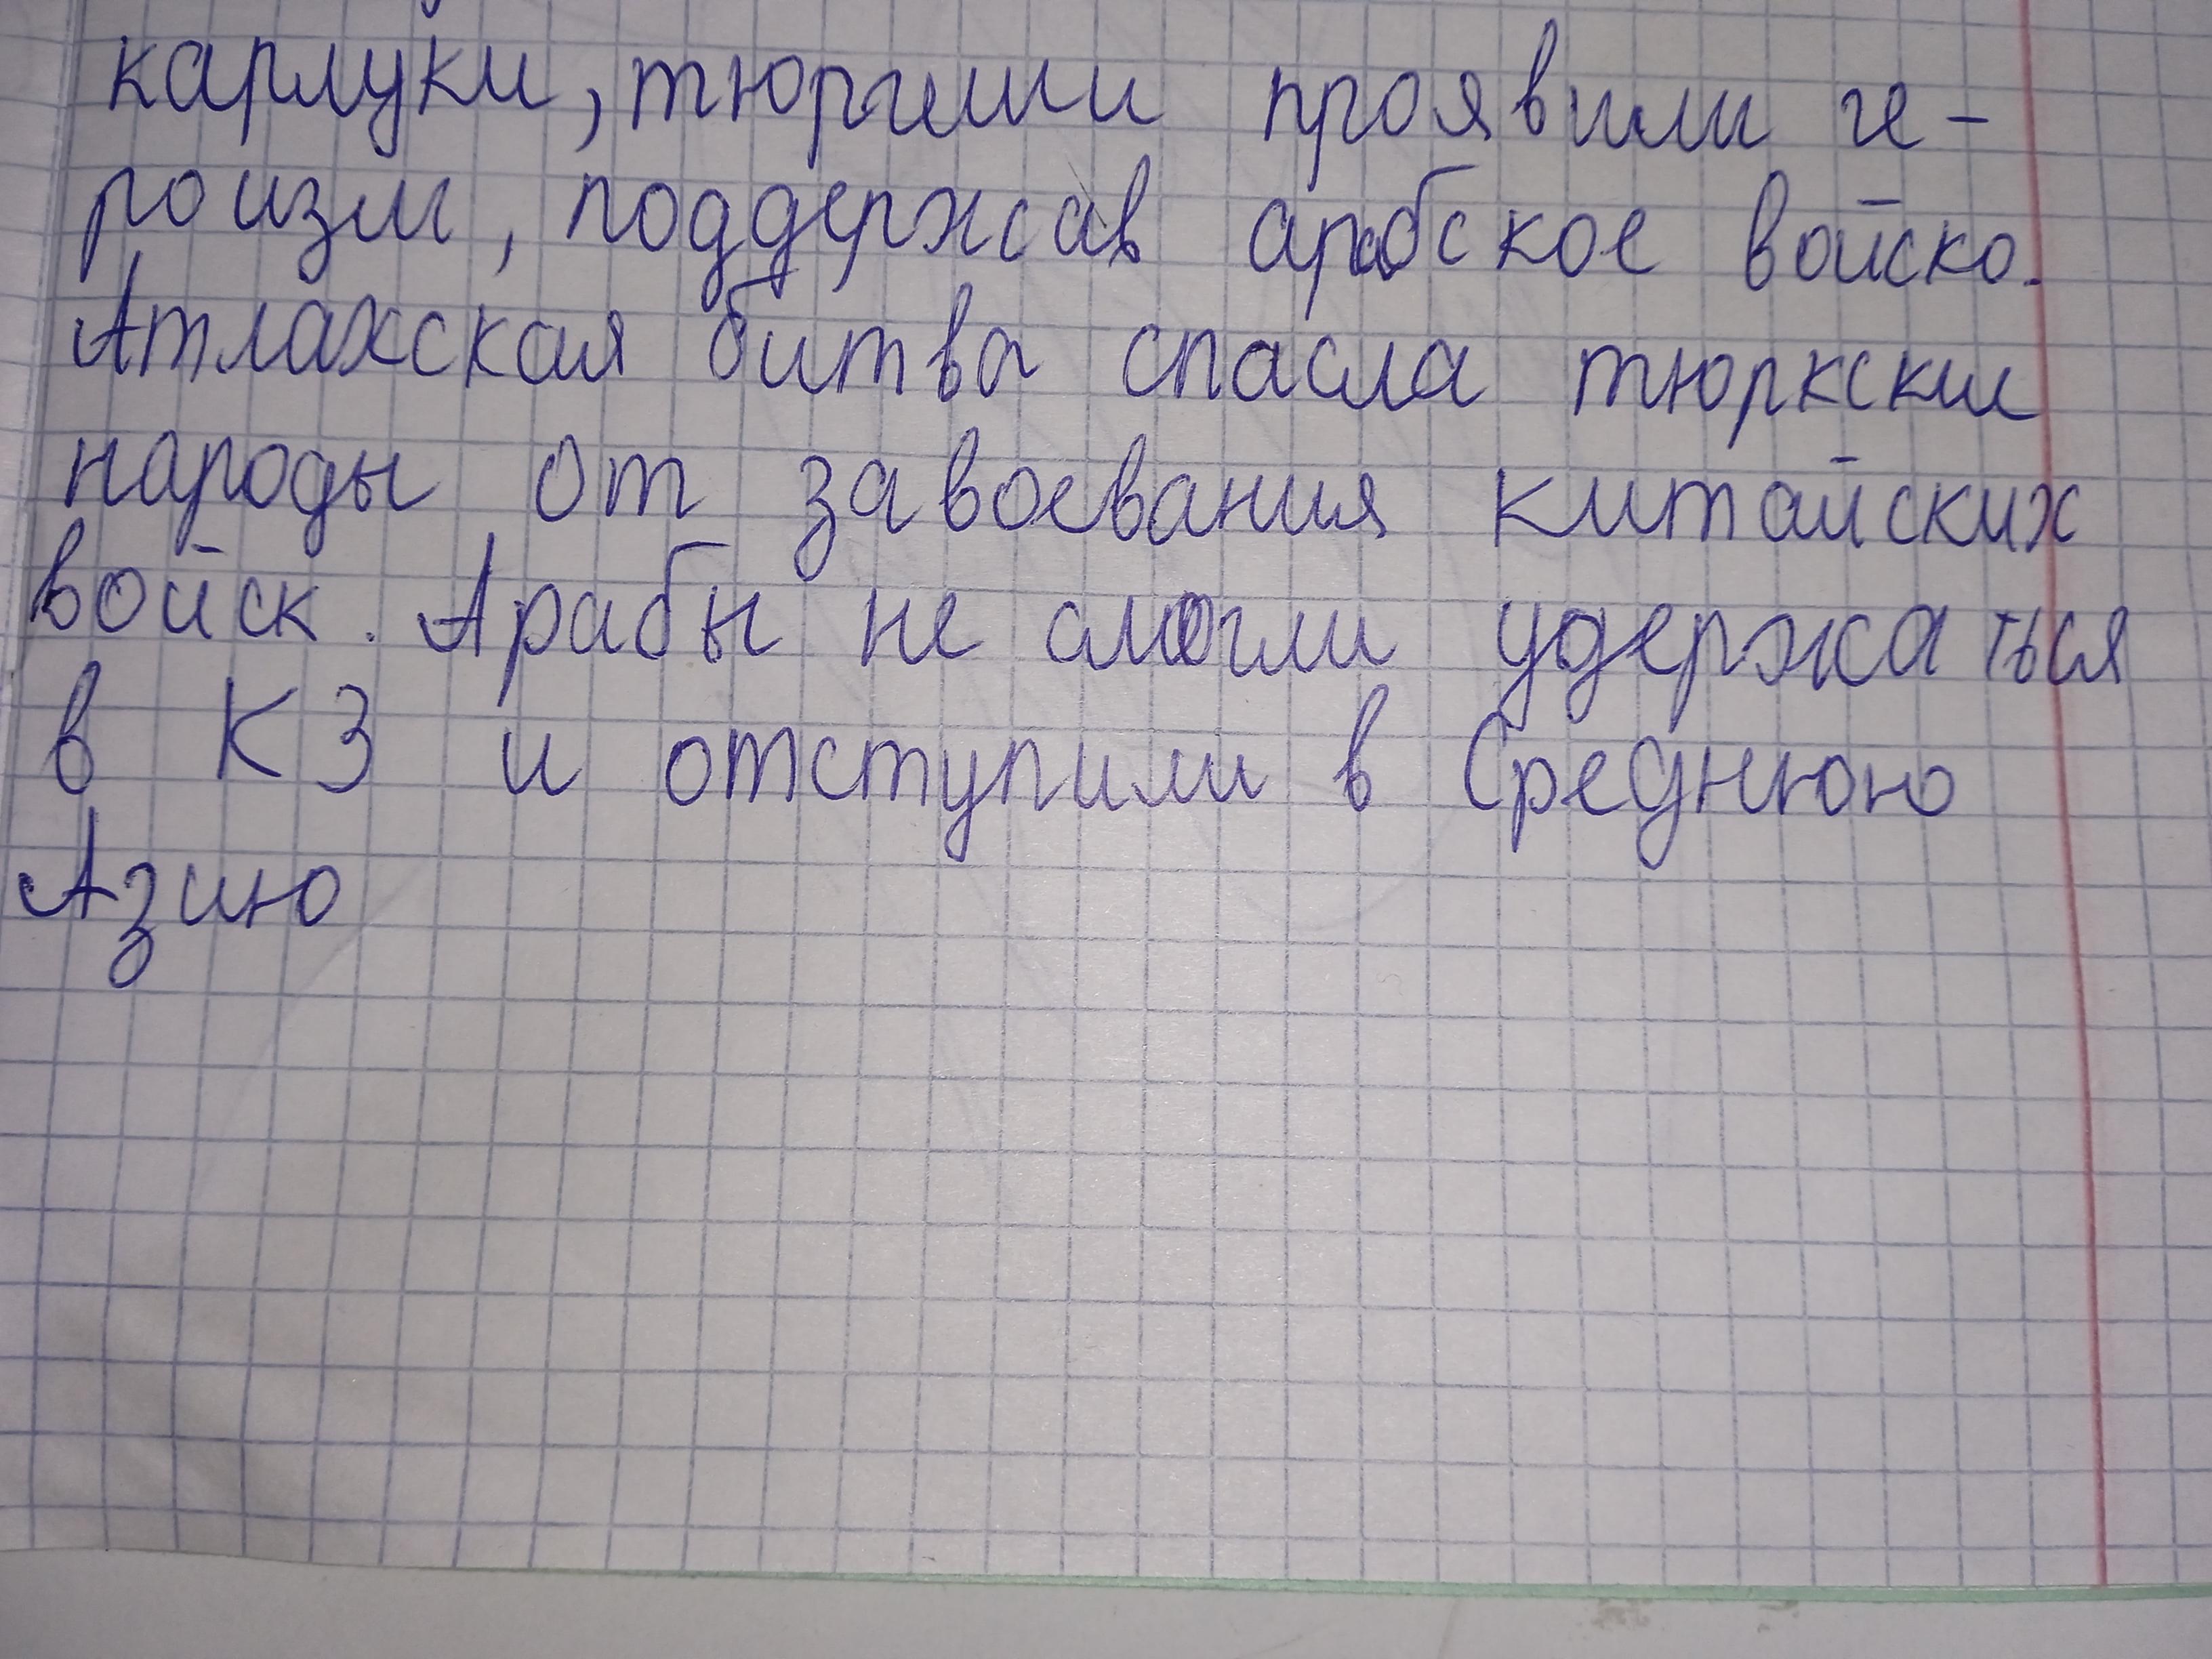 карлуки, тюргеши проявили ге-
роизм, поддержав арабское войско.
Атлахская битва спасла тюркские
народы от завоевания китайских
войск. Арабы не смогли удержаться
в КЗ и отступили в Среднюю
Азию